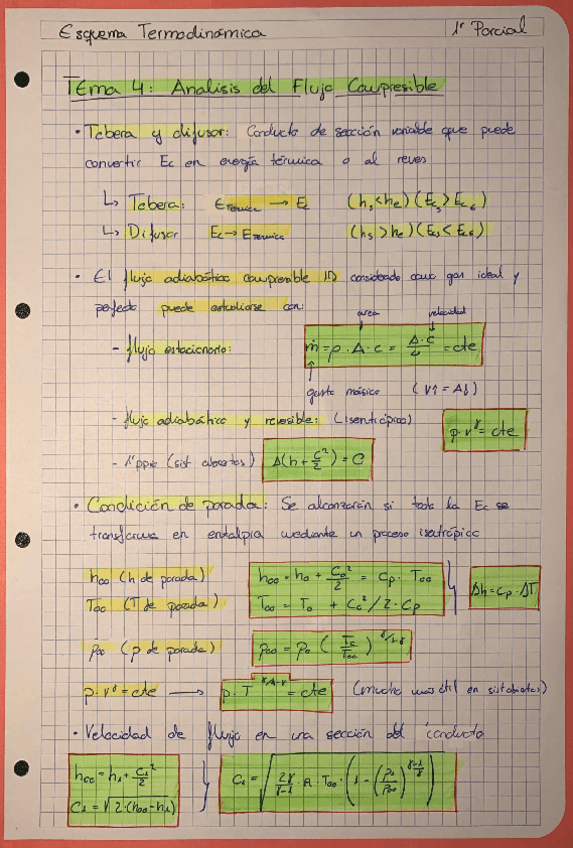 Esquema Termodinámica 1º Parcial
TEma 4: Analisis del Flujo Compresible
· Tobera y difusor: Conducto de sección variable que puede
convertir Ec en energía térmica o al reves
↳ Tobera: Etérmica → Ec (hs<he) (Ecs>Ece)
↳ Difusor Ec→Etérmica (hs>he) (Ecs<Ece)
· El flujo adiabático compresible 1D considerado como gas ideal y
perfecto puede estudiarse con:
area velocidad
- flujo estacionario: ṁ = ρ·A·c = A·c/v = cte
gasto másico (v↑ = A↓)
- flujo adiabático y reversible: (isentrópico) p·v^γ = cte
- 1ºppio (sist abiertos) Δ(h + c²/2) = 0
· Condición de parada: Se alcanzarán si toda la Ec se
transforma en entalpia mediante un proceso isentrópico
h00 (h de parada) h00 = h0 + c0²/2 = Cp · T00
T00 (T de parada) T00 = T0 + C0²/2·Cp Δh = Cp·ΔT
p00 (p de parada) p00 = p0 (T0/T00)^γ/1-γ
p·v^γ = cte → p·T^γ/1-γ = cte (mucho más útil en sist abiertos)
· Velocidad de flujo en una sección del conducto
h00 = h1 + C1²/2
C1 = √2·(h00-h1) C1 = √(2γ/γ-1 · R · T00 · (1 - (p1/p00)^γ-1/γ))